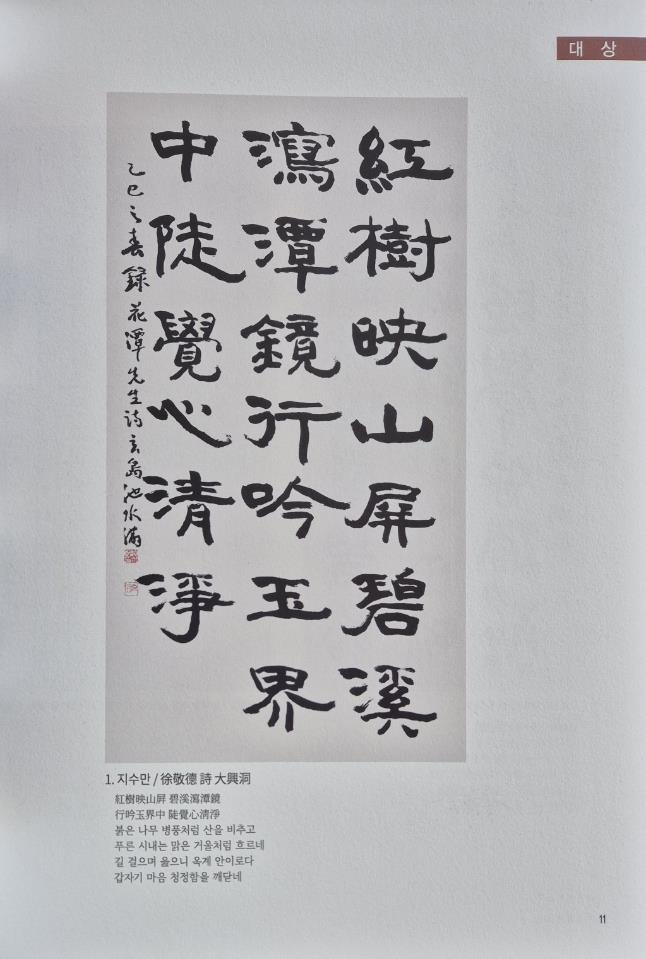 대 상
紅樹映山屏碧溪
瀉潭鏡行吟玉界
中陡覺心清淨
乙巳之春錄花潭先生詩玄島池水滿
1. 지수만 / 徐敬德 詩 大興洞
紅樹映山屛 碧溪瀉潭鏡
行吟玉界中 陡覺心淸淨
붉은 나무 병풍처럼 산을 비추고
푸른 시내는 맑은 거울처럼 흐르네
길 걸으며 읊으니 옥계 안이로다
갑자기 마음 청정함을 깨닫네
11